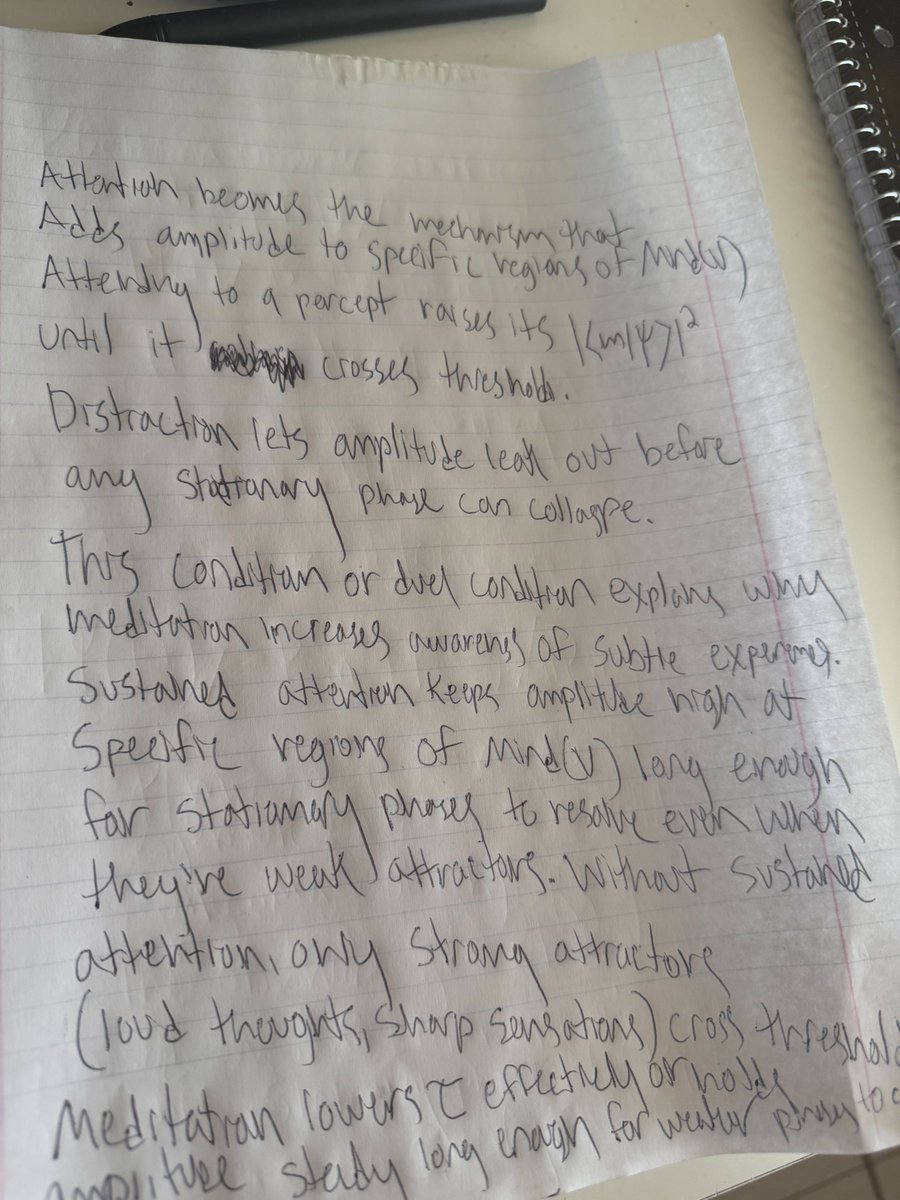 Attention becomes the mechnism that
Adds amplitude to specific regions of Mind(v)
Attending to a percept raises its |<m|ψ>|²
until it crosses threshold.
Distraction lets amplitude leak out before
any stationary phase can collapse.
This condition or duel condition explains why
meditation increases awareness of subtle experiences.
Sustained attention keeps amplitude high at
Specific regions of Mind(v) long enough
for stationary phases to resolve even when
they're weak attractors. Without sustained
attention, only strong attractors
(loud thoughts, sharp sensations) cross threshold
Meditation lowers τ effectively or holds
amplitude steady long enough for weaker phases to